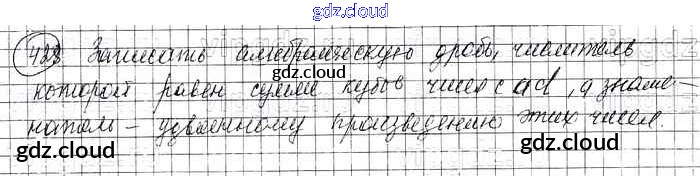 gdz.cloud
428 Записать алгебраическую дробь, числитель
gdz.cloud
которой равен сумме кубов чисел c и d, а знаме-
gdz.cloud
натель - удвоенному произведению этих чисел.
gdz.cloud gdz.cloud